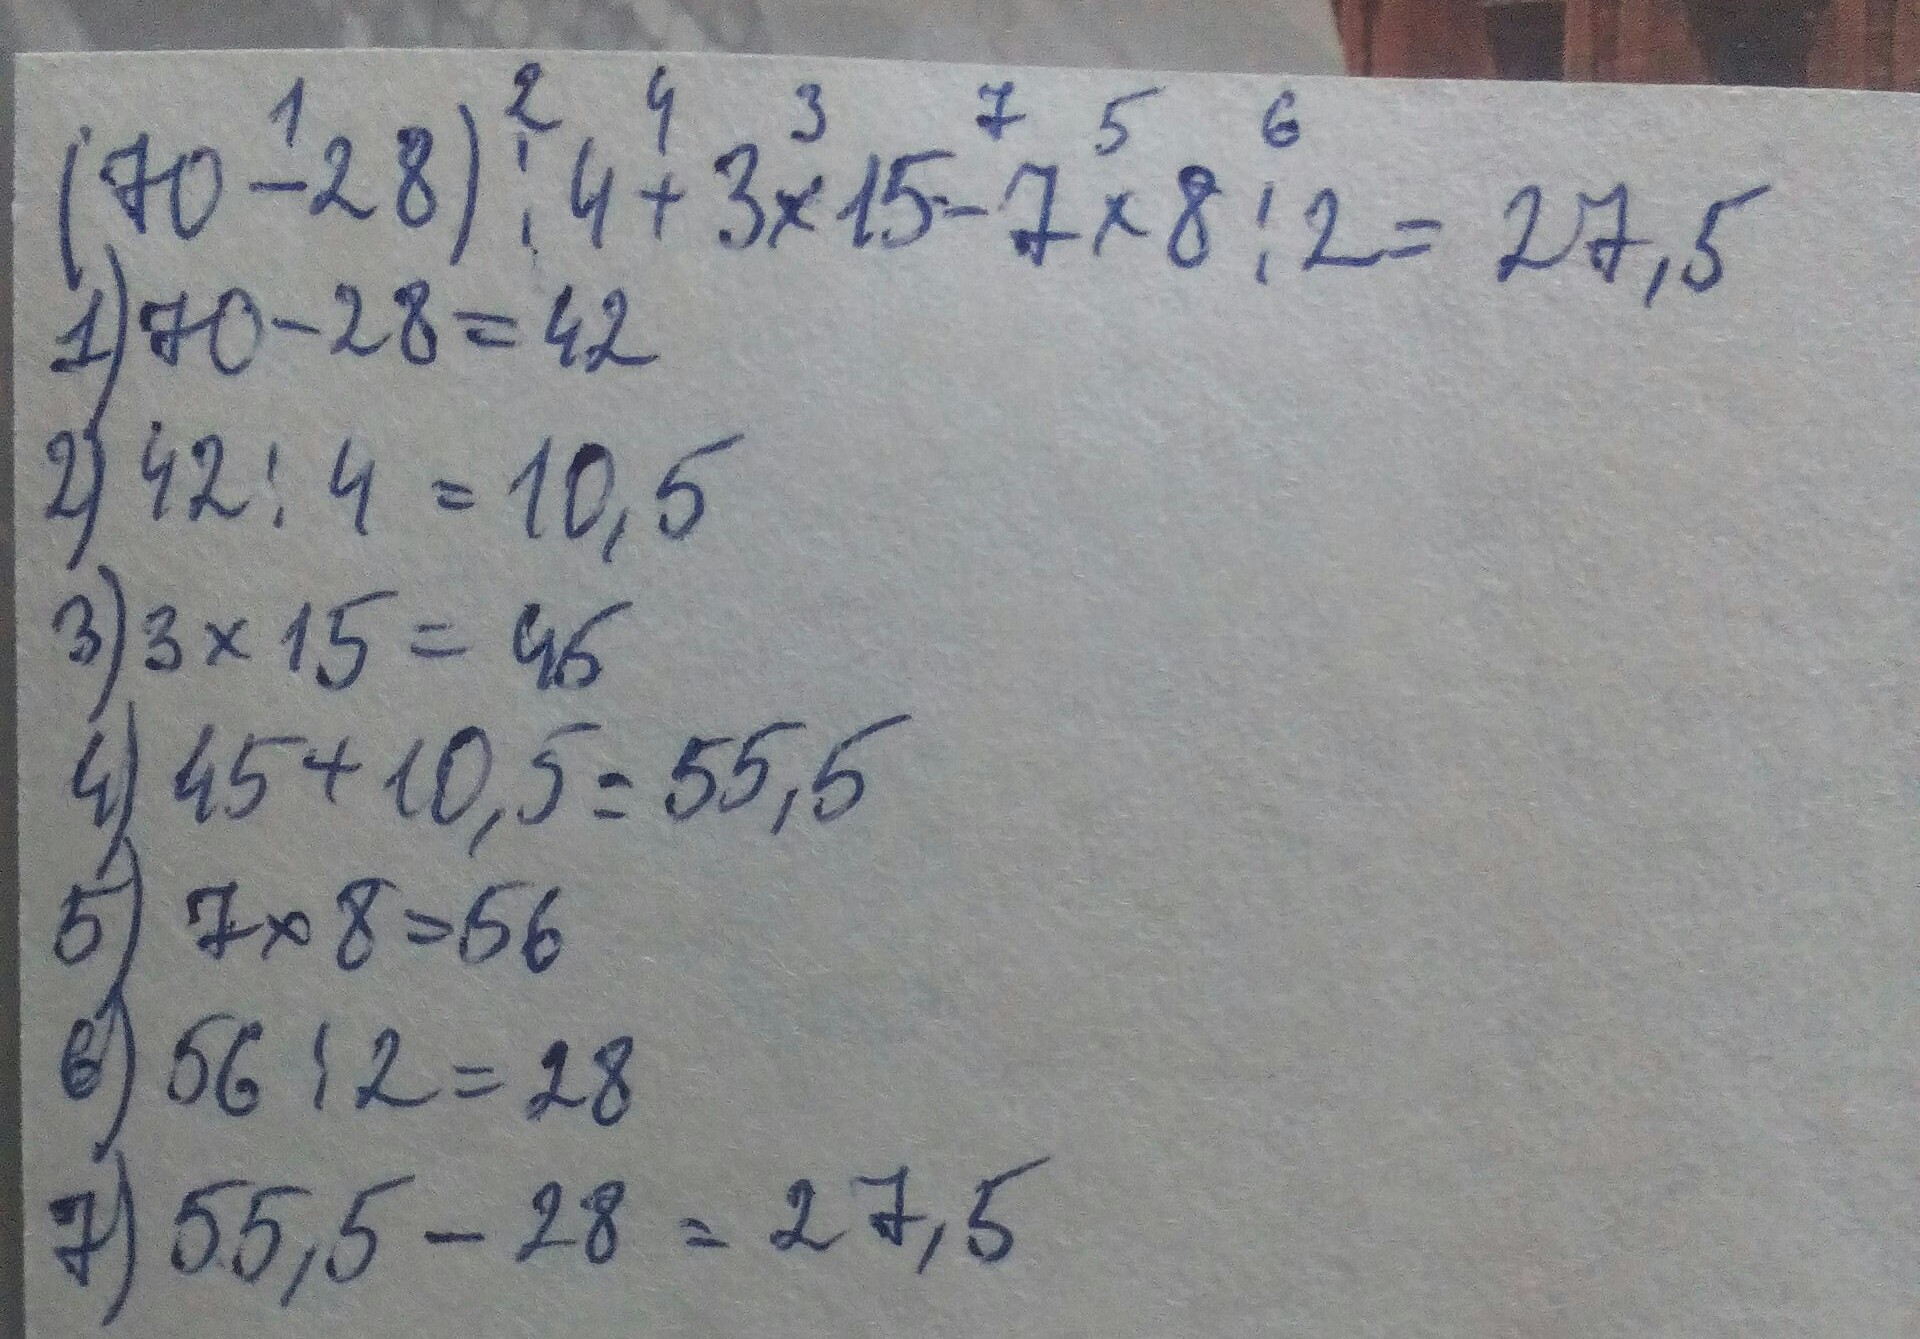 1 2 4 3 7 5 6
(70-28):4+3×15-7×8:2=27,5
1) 70-28=42
2) 42:4=10,5
3) 3×15=45
4) 45+10,5=55,5
5) 7×8=56
6) 56:2=28
7) 55,5-28=27,5